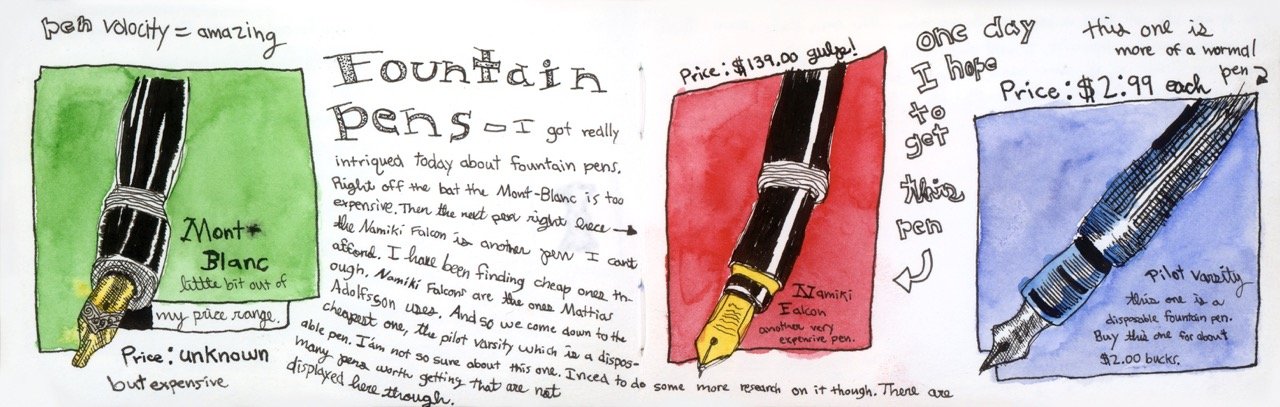 pen volocity = amazing
Mont
Blanc
little bit out of
my price range.
Price: unknown
but expensive
Fountain
pens - I got really
intriqued today about fountain pens.
Right off the bat the Mont-Blanc is too
expensive. Then the next pen right here →
the Namiki Falcon is another pen I can't
afford. I have been finding cheap ones th-
ough. Namiki Falcons are the ones Mattias
Adolfsson uses. And so we come down to the
cheapest one, the pilot varsity which is a dispos-
able pen. I am not so sure about this one. I need to do some more research on it though. There are
many pens worth getting that are not
displayed here though.
Price: $139.00 gulp!
Namiki
Falcon
another very
expensive pen.
one day
I hope
to
get
this
pen
this one is
more of a normal
pen
Price: $2.99 each
Pilot varsity
this one is a
disposable fountain pen.
Buy this one for about
$2.00 bucks.